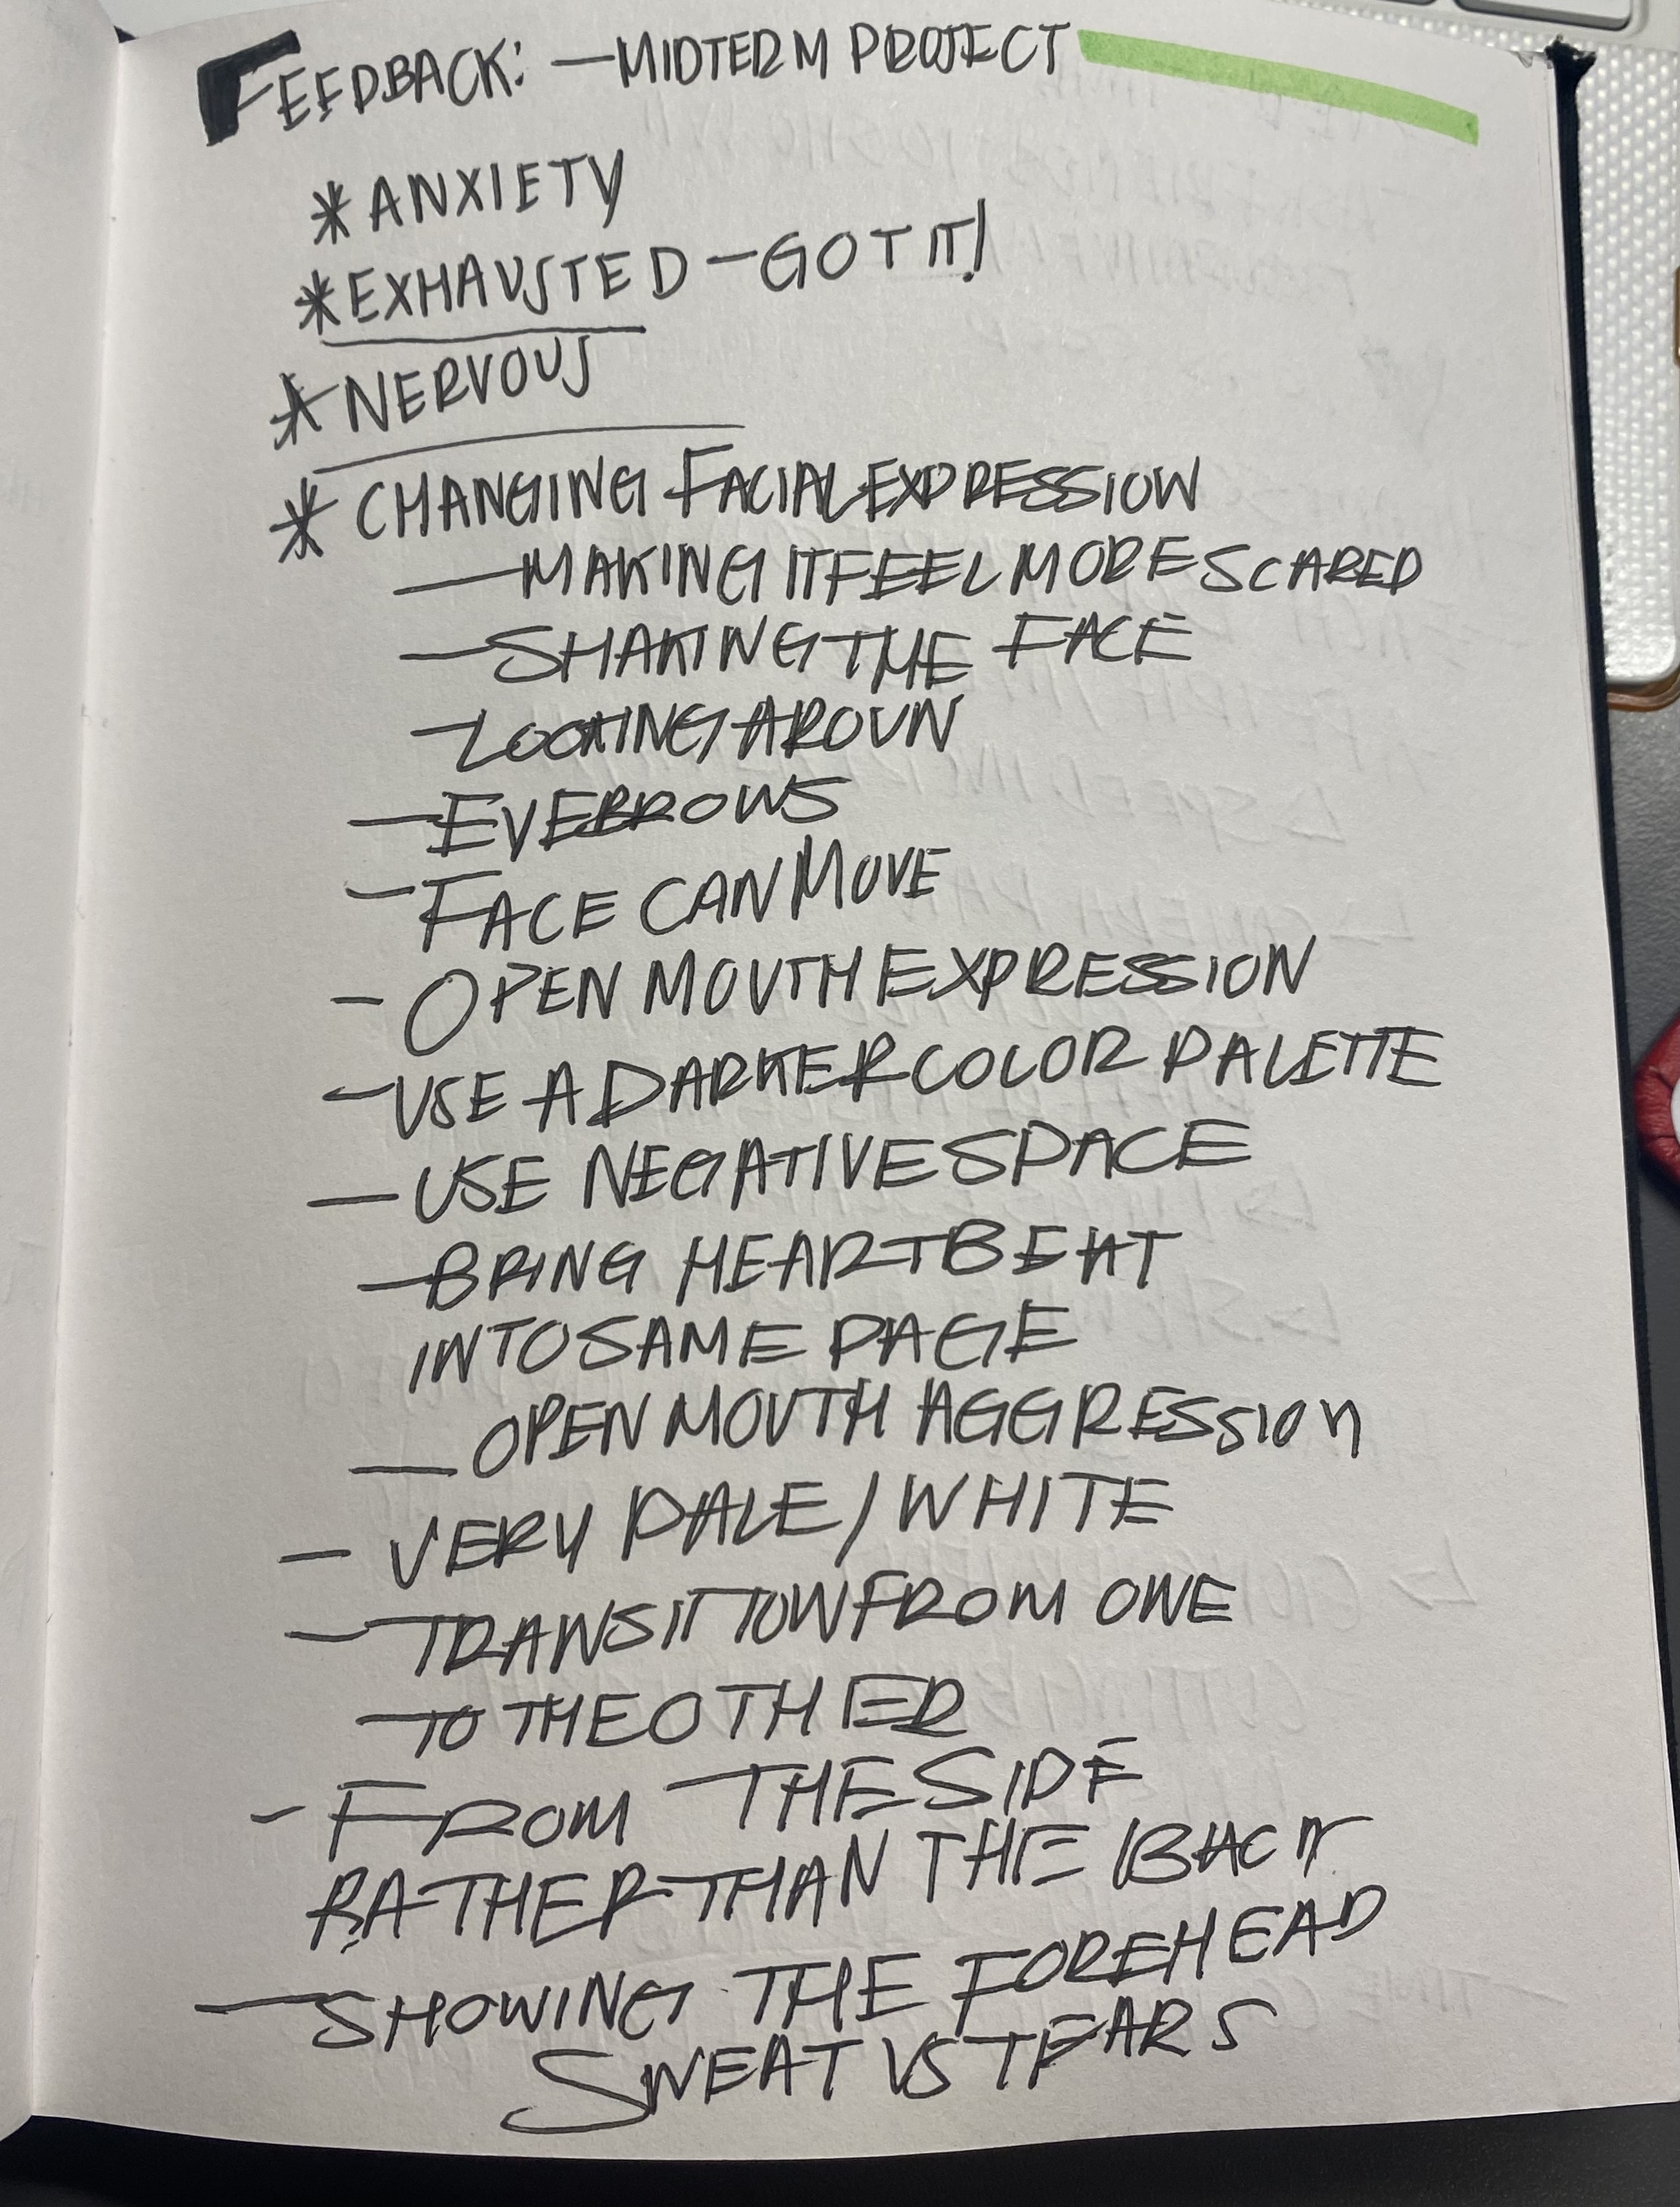 FEEDBACK: — MIDTERM PROJECT
* ANXIETY
* EXHAUSTED — GOT IT!
* NERVOUS
* CHANGING FACIAL EXPRESSION
— MAKING IT FEEL MORE SCARED
— SHAKING THE FACE
— LOOKING AROUN
— EYEBROWS
— FACE CAN MOVE
— OPEN MOUTH EXPRESSION
— USE A DARKER COLOR PALETTE
— USE NEGATIVE SPACE
— BRING HEARTBEAT
INTO SAME PAGE
— OPEN MOUTH AGGRESSION
— VERY PALE / WHITE
— TRANSITION FROM ONE
TO THE OTHER
— FROM THE SIDE
RATHER THAN THE BACK
— SHOWING THE FOREHEAD
SWEAT VS TEARS